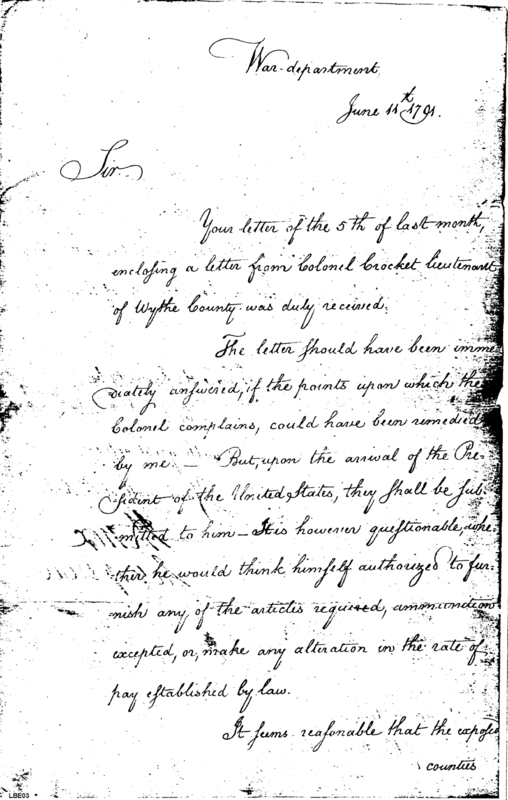 War-department,
June 11th 1791.
Sir
Your letter of the 5th of last month,
enclosing a letter from Colonel Crocket lieutenant
of Wythe County was duly received.
The letter should have been imme
diately answered, if the points upon which the
Colonel complains, could have been remedied
by me. — But, upon the arrival of the Pre-
sident of the United States, they shall be sub-
mitted to him — It is however questionable, whe-
ther he would think himself authorized to fur-
nish any of the articles required, ammunition
excepted, or, make any alteration in the rate of
pay established by law.
It seems reasonable that the exposed
counties
LBE03